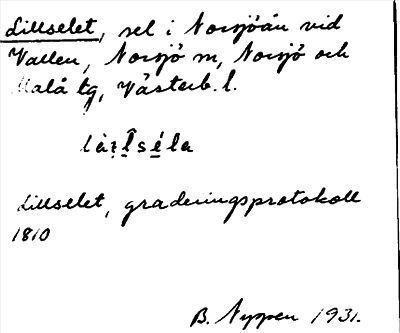 Lillselet, sel i Norsjöån vid
Vallen, Norsjö sn, Norsjö och
Malå tg, Västerb. l.
Lillselet, graderingsprotokoll
1810
B. Nyppen 1931.